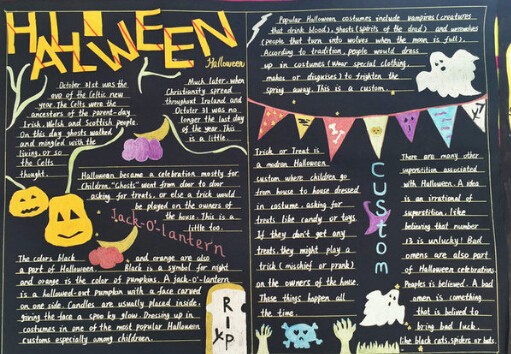 HALLOWEEN
Halloween
October 31st was the
eve of the Celtic new
year. The Celts were the
ancestors of the parent-day
Irish, Welsh and Scottish people.
On this day ghosts walked
and mingled with the
living, or so
the Celts
thought.
Much later, when
Christianity spread
throughout Ireland and
October 31 was no
longer the last day
of the year. This
is a little.
Halloween became a celebration mostly for
children. "Ghosts" went from door to door
asking for treats, or else a trick would
be played on the owners of
the house. This is a
little too.
Jack-o'-lantern
The colors black and orange are also
a part of Halloween. Black is a symbol for night
and orange is the color of pumpkins. A jack-o'-lantern
is a hollowed-out pumpkin with a face carved
on one side. Candles are usually placed inside,
giving the face a spooky glow. Dressing up in
costumes in one of the most popular Halloween
customs especially among children.
RIP
Popular Halloween costumes include vampires (creatures
that drink blood), ghosts (spirits of the dead) and werewolves
(people that turn into wolves when the moon is full).
According to tradition, people would dress
up in costumes (wear special clothing,
makes or disguises) to frighten the
spring away. This is a custom.
Trick or Treat is
a modern Halloween
custom where children go
from house to house dressed
in costume, asking for
treats like candy or toys.
If they don't get any
treats, they might play a
trick (mischief or prank)
on the owners of the house.
These things happen all
the time.
Custom
There are many other
superstition associated
with Halloween. A idea
is an irrational of
superstition, like
believing that number
13 is unlucky! Bad
omens are also part
of Halloween celebrations
Peoples is believed. A bad
omen is something
that is belived to
bring bad luck,
like black cats, spiders or bats.